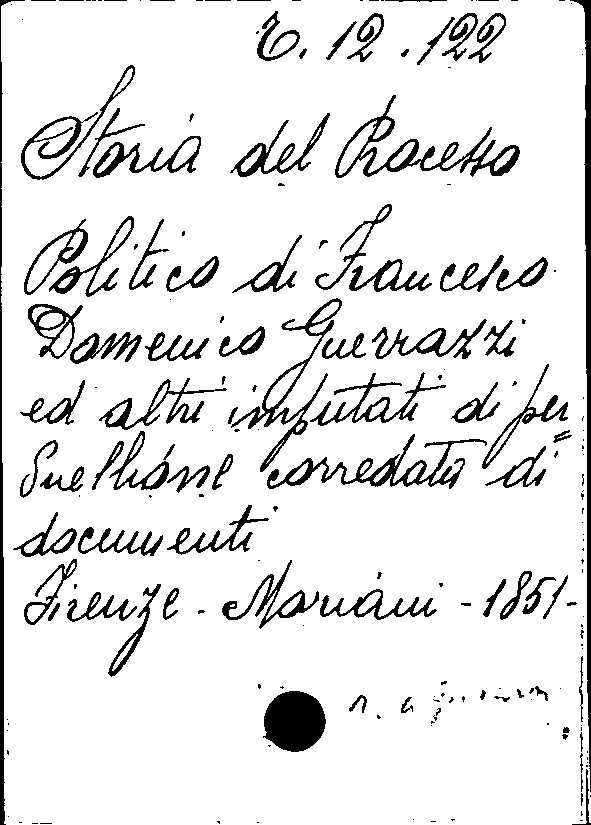 6. 12 . 122
Storia del Processo
Politico di Francesco
Domenico Guerrazzi
ed altri imputati di per=
duellione corredata di
documenti
Firenze - Mariani - 1851 -